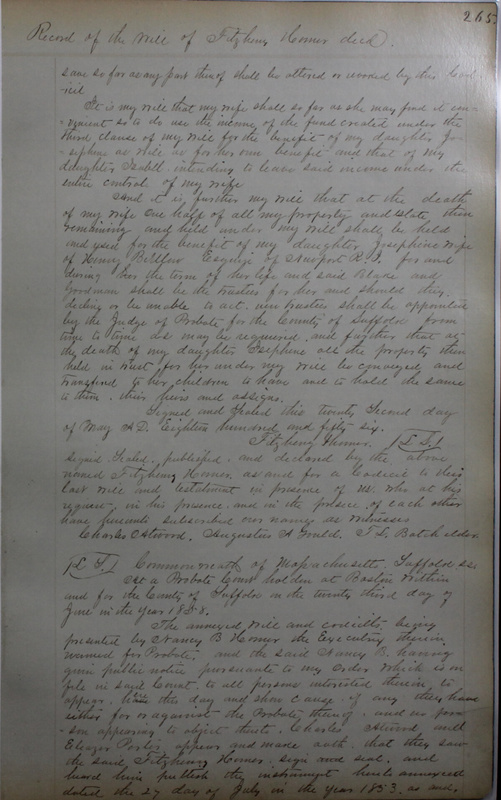 265
Record of the Will of Fitzhenry Homer decd.
same so far as any part thereof shall be altered or revoked by this Cod-
icil
It is my will that my wife shall so far as she may find it con-
-venient so to do use the income of the fund created under the
third clause of my will for the benefit of my daughter Jo-
-sephine as well as for her own benefit and that of my
daughter Isabell intending to leave said income under the
entire control of my wife
And it is further my will that at the death
of my wife one half of all my property and estate then
remaining and held under my will shall be held
and used for the benefit of my daughter Josephine wife
of Henry Bellow Esquire of Newport R.I. for and
during her the term of her life and said Blake and
Goodman shall be the trustees for her and should they
decline or be unable to act new trustees shall be appointed
by the Judge of Probate for the County of Suffolk from
time to time as may be required. and further that at
the death of my daughter Josephine all the property then
held in trust for her under my will be conveyed and
transferred to her children to have and to hold the same
to them their heirs and assigns.
Signed and Sealed this twenty Second day
of May A.D. Eighteen hundred and fifty six.
Fitzhenry Homer. [L.S.]
Signed Sealed, published, and declared by the above
named Fitzhenry Homer, as and for a Codicil to his
last will and testament in presence of us. who at his
request in his presence and in the presence of each other
have hereunto subscribed our names as witnesses
Charles Atwood. Augustus A Gould. F.L. Batchelder.
[L.S.] Commonwealth of Massachusetts. Suffolk ss.
At a Probate Court holden at Boston within
and for the County of Suffolk on the twenty third day of
June in the year 1858.
The annexed will and codicills being
presented by Nancy B Homer the Executrix therein
named for Probate, and the said Nancy B. having
given public notice pursuant to my order which is on
file in said Court to all persons interested therein to
appear this day and show cause if any they have
either for or against the Probate thereof and no per-
son appearing to object thereto Charles Atwood and
Eleazer Porter appear and make oath that they saw
the said Fitzhenry Homer sign and seal, and
heard him publish the instrument hereto annexed
dated the 27 day of July in the year 1853, as and